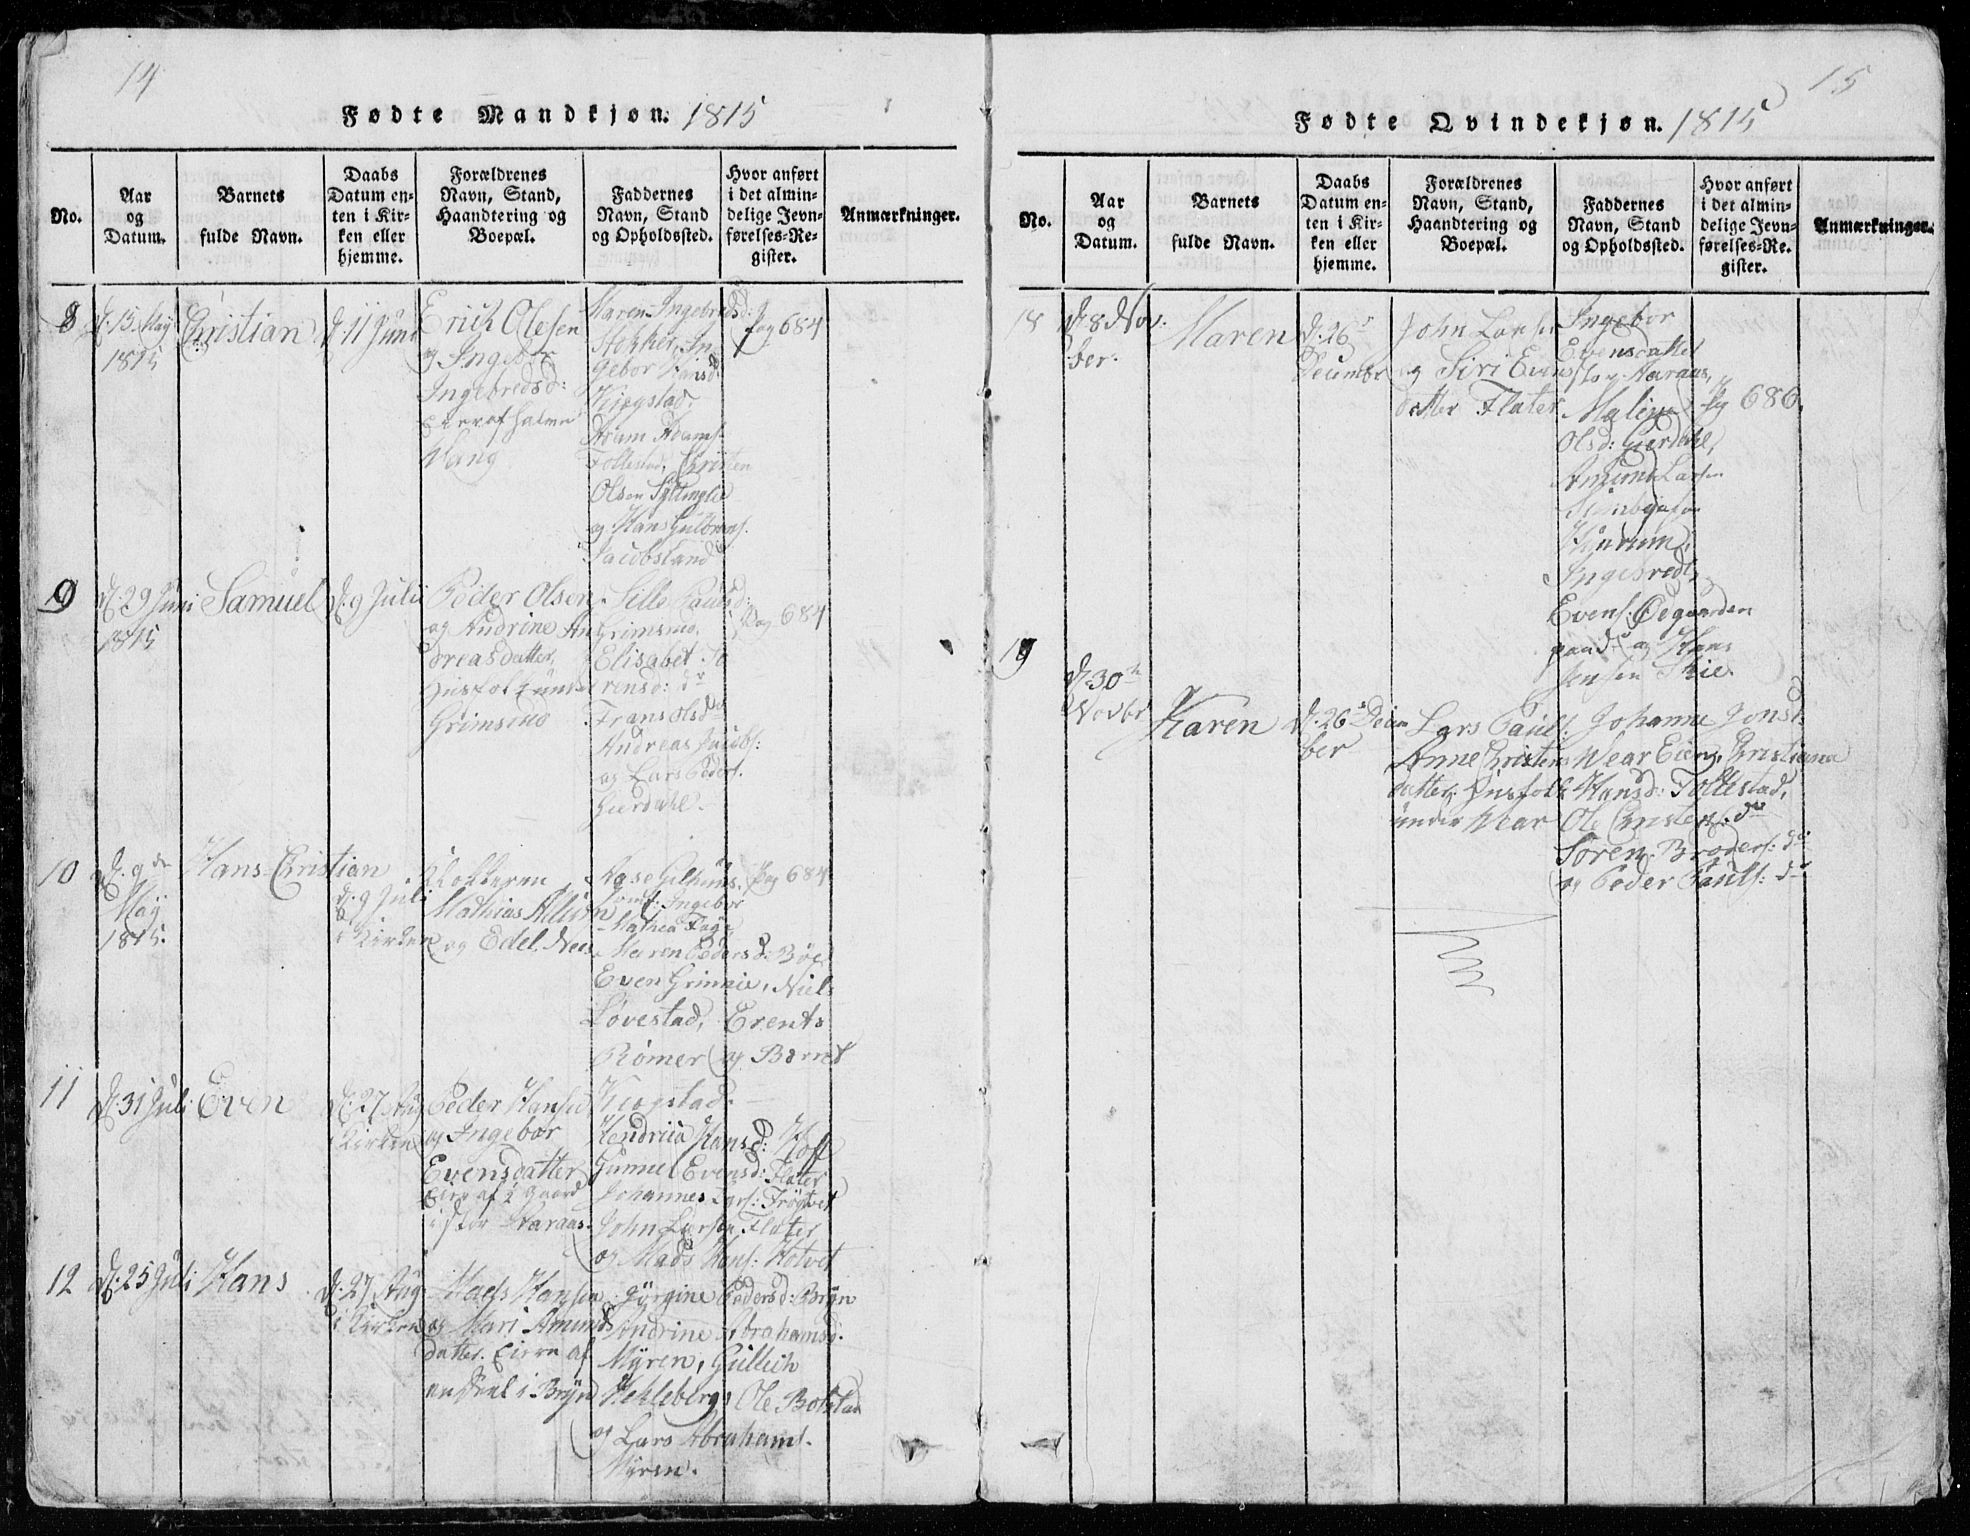 14
Fødte Mandkjøn. 1815
No.
Aar
og
Datum.
Barnets
fulde Navn.
Daabs
Datum en-
ten i Kir-
ken eller
hjemme.
Forældrenes
Navn, Stand,
Haandtering og
Boepæl.
Faddernes
Navn, Stand
og Opholdssted.
Hvor anført
i det almin-
delige Jevn-
førelses-Re-
gister.
Anmærkninger.
8
d: 15 May
1815
Christian
d: 11 Juni
Erich Olesen
og Ingebor
Ingebredsd:
Eiere af halve
Wang
Maren Ingebredsd:
Stokker, In
gebor Hansd:
Kiogstad,
Adam Adams.
Follestad, Christen
Olsen
og Hans Guldbrans.
Jacobsland
Pag 684
9
d: 29 Juni
1815
Samuel
d. 9 Julii
Peder Olsen
og Andrine An
dreasdatter,
Huusfolk under
Grimsmo
Sille Paulsd:
Grimsmo,
Elisabet So
rensd: do
Frans Olsd
Andreas Jacobs:
og Lars Peders.
Gierdahl.
Pag 684
10
d: 9de
May
1815.
Hans Christian
d: 9 Juli
i Kirken
Klokkeren
Mathias
og Edel Nees
Aase Gilhuus,
Jomf: Ingebor
Mathea
Maren Pedersd: Böe
Even Grimnie, Niels
Lövestad, Erents
Römer og Bernt
Kiogstad.
Pag 684
11
d: 31 Juli
Even
d: 27 Aug
i Kirken
Peder Hansen
og Ingebor
Evensdatter
Eiere af ½ Gaard
i stor Haraas.
Hendrica Hansd: Hoff
Gunnel Evensd: Flater
Johannes Lars: Frögtvet
John Larsen Flater
og Mads Hans: Hotvet
12
d: 25 Juli
Hans
d: 27 Aug
i Kirken
Mads Hansen
og Mari Amunds
datter. Eiere af
en Deel i Bryn
Jörgine Pedersd: Bryn
Andrine Abrahamsd.
Myren, Gullich
Hekleberg, Ole Botstad
og Lars Abrahams.
Myren.
15
Fødte Qvindekjøn. 1815
No.
Aar
og
Datum.
Barnets
fulde Navn.
Daabs
Datum en-
ten i Kir-
ken eller
hjemme.
Forældrenes
Navn, Stand,
Haandtering og
Boepæl.
Faddernes
Navn, Stand
og Opholdssted.
Hvor anført
i det almin-
delige Jevn-
førelses-Re-
gister.
Anmærkninger.
18
d: 8 Nov:
ber.
Maren
d: 26
Decembr
John Larsen
og Siri Evens
datter Flater
Ingebor
Evensdatter
stor Haraas,
Malene
Olsd: Gierdahl,
Amund Larsen
Ingebredt
Evens. Oegaarden
og Hans
Jensen Skie.
Pag 686.
19
d: 30te
Novbr
Karen
d: 26 Decem
ber
Lars Pauls:
Anne Christens
datter, Huusfolk
under Wear
Johanne Jonsd:
Wear Eier, Christiana
Hansd: Follestad,
Ole Christens: do
Soren Broders: do
og Peder Pauls: do